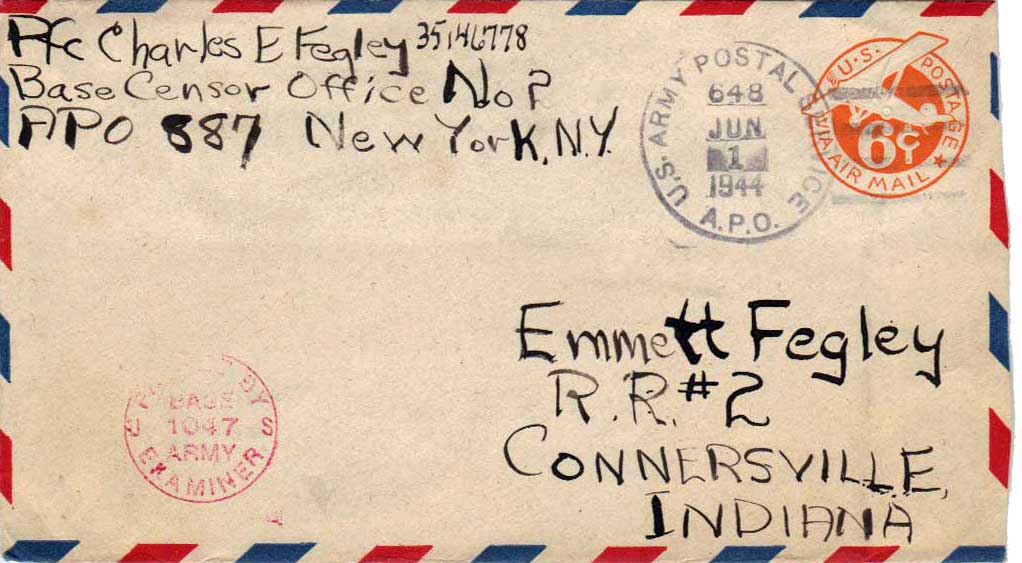 Pfc Charles E Fegley 35146778
Base Censor Office No 2
APO 887 New York, N.Y.
U.S. ARMY POSTAL SERVICE
648
JUN
1
1944
A.P.O.
U.S. POSTAGE
6¢
VIA AIR MAIL
Emmett Fegley
R.R. #2
CONNERSVILLE,
INDIANA
BY
BASE
U 1047 S
ARMY
EXAMINER